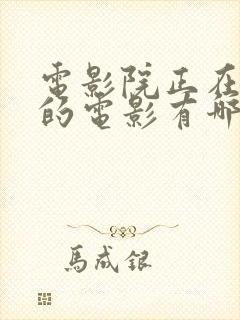 電影院正在
的電影有哪
馬成銀